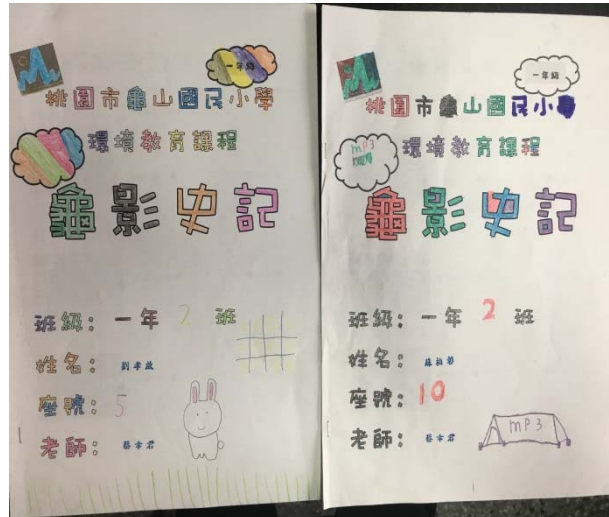 一年級
桃園市龜山國民小學
環境教育課程
龜影史記
班級：一年 2 班
姓名：
座號：5
老師：
一年級
桃園市龜山國民小學
mP3
環境教育課程
龜影史記
班級：一年 2 班
姓名：
座號：10
老師：
mP3